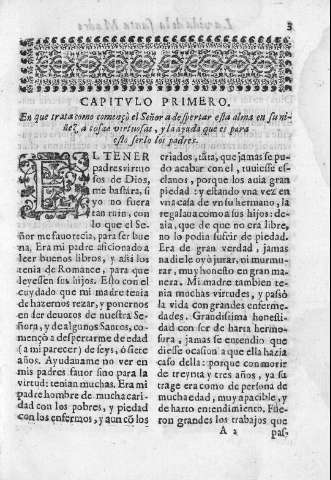 3
CAPITVLO PRIMERO.
En que trata como començò el Señor a despertar esta alma en su ni-
ñez, a cosas virtuosas, y la ayuda que es para
esto serlo los padres.
EL TENER
padres virtuo
sos de Dios,
me bastára, si
yo no fuera
tan ruin, con
lo que el Se-
ñor me fauorecia, para ser bue
na. Era mi padre aficionado a
leer buenos libros, y assi los
tenia de Romance, para que
leyessen sus hijos. Esto con el
cuydado que mi madre tenia
de hazernos rezar, y ponernos
en ser deuotos de nuestra Se-
ñora, y de algunos Santos, com-
enço a despertarme de edad
(a mi parecer) de seys, ò siete
años. Ayudauame no ver en
mis padres fauor sino para la
virtud: tenian muchas. Era mi
padre hombre de mucha cari-
dad con los pobres, y piedad
con los enfermos, y aun cõ los
criados, tãta, que jamas se pu-
do acabar con el, tuuiesse es-
clauos, porque los auia gran
piedad: y estando vna vez en
vna casa de vn su hermano, la
regalaua como a sus hijos: de-
zia, que de que no era libre,
no lo podia sufrir de piedad.
Era de gran verdad, jamas
nadie le oyò jurar, ni murmu-
rar, muy honesto en gran ma-
nera. Mi madre tambien te-
nia muchas virtudes, y passò
la vida con grandes enferme-
dades. Grandissima honesti-
dad con ser de harta hermo-
sura, jamas se entendio que
diesse ocasion a que ella hazia
caso della: porque con morir
de treynta y tres años, ya su
trage era como de persona de
mucha edad, muy apacible, y
de harto entendimiento. Fue-
ron grandes los trabajos que
A 2
pas-